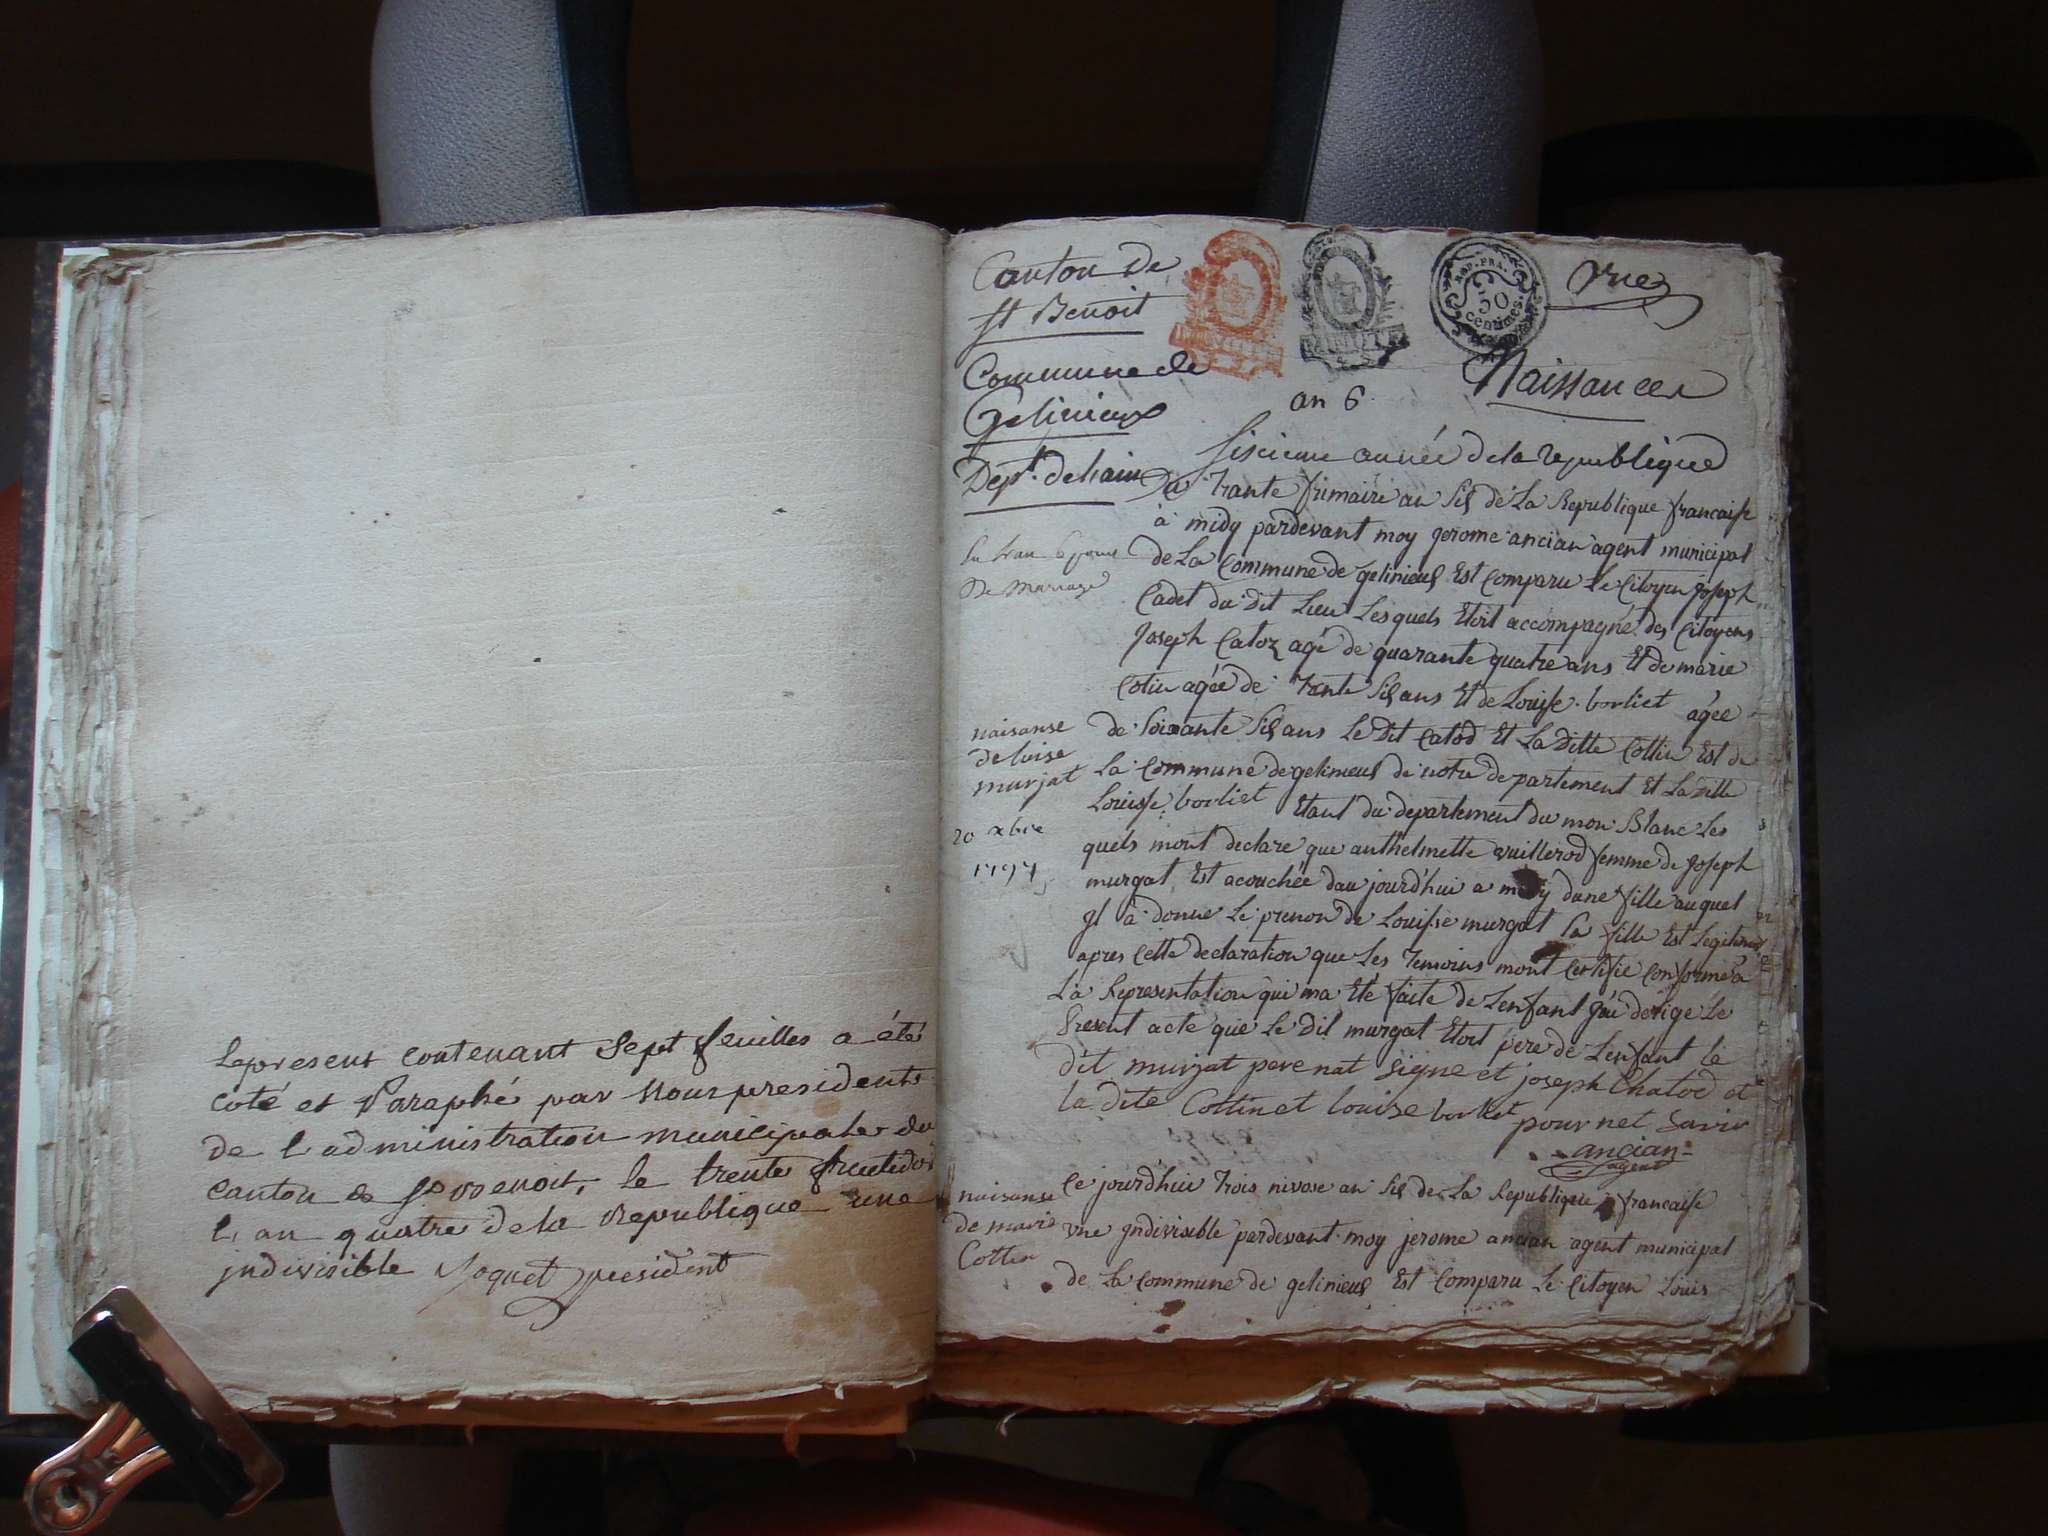 Le present contenant sept feuilles a été
coté et Paraphé par nous president
de l administration municipale du
canton de st Benoit, le trente fructidor
l an quatre de la republique une
indivisible Joquet president
Canton de
st Benoit
Commune de
Gelinieux
Dept. de hain
REP. FRA.
50
centimes
une
an 6
Naissances
siscieme année de la republique
Du trante frimaire an siş de La Republique francaisse
à midy pardevant moy jerome ancian agent municipal
de La Commune de gelinieuş Est Comparu Le Citoyen joseph
Cadet du dit Lieu Lesquels Etoit accompagné des Citoyens
joseph Catoz agé de quarante quatre ans Et de marie
Cotin agée de trante siş ans Et de Louisse borliet agée
de soixante siş ans Le Dit Catod Et La Ditte Cottin Est de
La Commune de gelinieuş de notre departement Et La ditte
Louisse borliet Etant du departement du mon Blanc Les
quels mont declare que anthelmette vuillerod femme de joseph
murgat Est acouchée dau jourd'hui a midy dune fille auquel
jl à donne Le prenon de Louisse murgat la fille Est Legitime
apres Cette declaration que Les temoins mont Certifie Conforme à
La Representation qui ma Eté faite de Lenfant jai derige Le
present acte que Le dit murgat Etoit pere de Lenfant le
dit murjat pere nat signe et joseph Chatod et
la dite Cottin et louise borliet pour net savir
ancian
agent
De Mariage
naisanse
de luise
murjat
20 xbre
1797
naisanse
de marie
Cottin
Ce jourdhui trois nivose an siş de La Republique francaisse
vne jndivisible pardevant moy jerome ancian agent municipal
de La Commune de gelinieuş Est Comparu Le Citoyen Louis